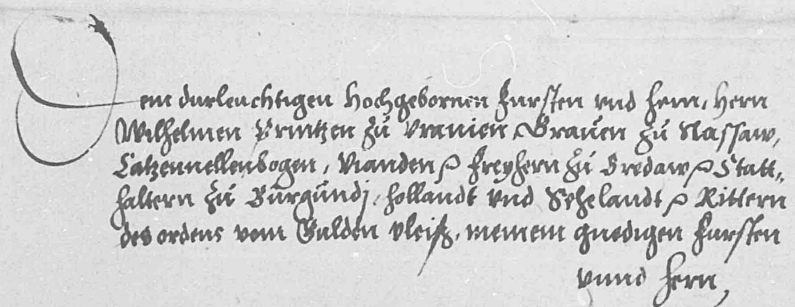 Dem durleuchtigen Hochgebornen Fursten vnd hern, Hern
Wilhelmen Printzen zů Vranien, Grauen zů Nassaw,
Catzennellenbogen, Vianden ꝛc Freyhern zů Bredaw ꝛc Statt„
haltern zů Bůrgůndj, Hollandt vnd Sehelandt ꝛc Rittern
des ordens vom Gulden vleiß, meinem gnedigen Fursten
vnnd hern,